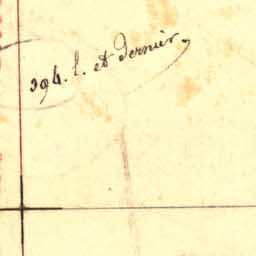 394. l. et dernier.